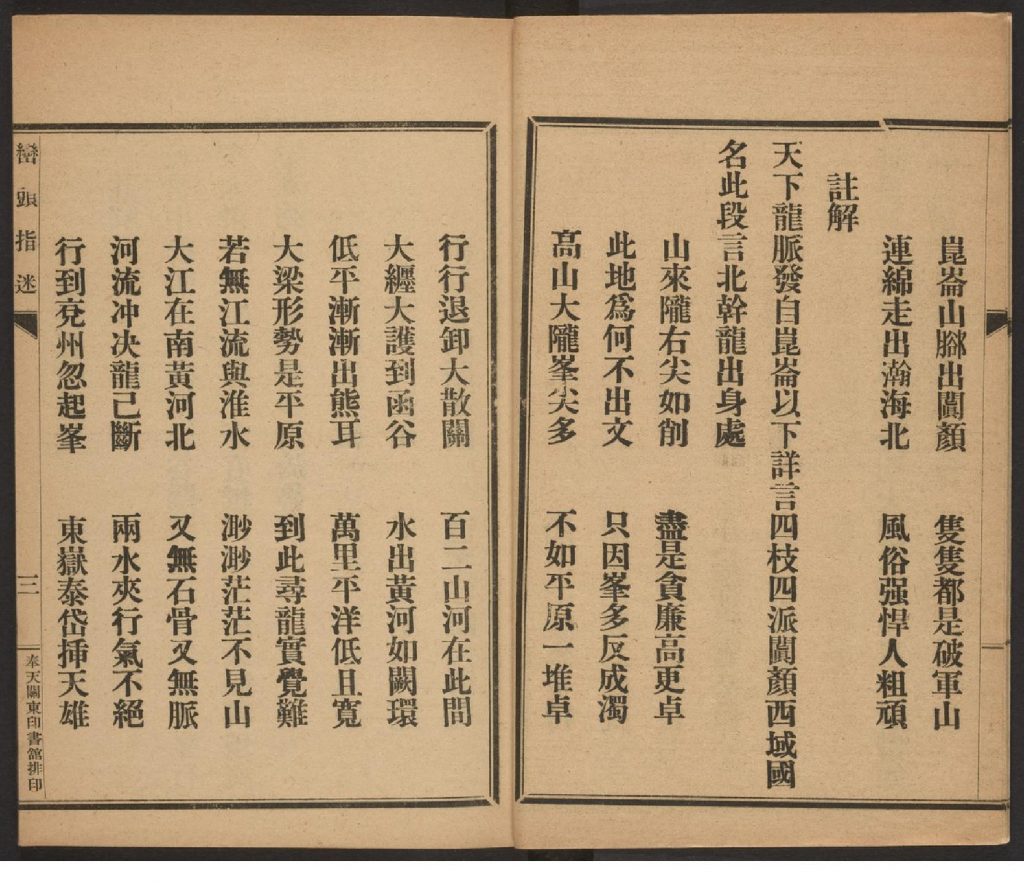 崑崙山腳出闐顏　隻隻都是破軍山
連綿走出瀚海北　風俗强悍人粗頑
註解
天下龍脈發自崑崙以下詳言四枝四派闐顏西域國
名此段言北幹龍出身處
山來隴右尖如削　盡是貪廉高更卓
此地爲何不出文　只因峯多反成濁
高山大隴峯尖多　不如平原一堆卓
行行退卸大散關　百二山河在此間
大纒大護到函谷　水出黃河如闕環
低平漸漸出熊耳　萬里平洋低且寬
大梁形勢是平原　到此尋龍實覺難
若無江流與淮水　渺渺茫茫不見山
大江在南黃河北　又無石骨又無脈
河流冲决龍己斷　兩水夾行氣不絕
行到兗州忽起峯　東嶽泰岱揷天雄
巒頭指迷
三
奉天關東印書舘排印